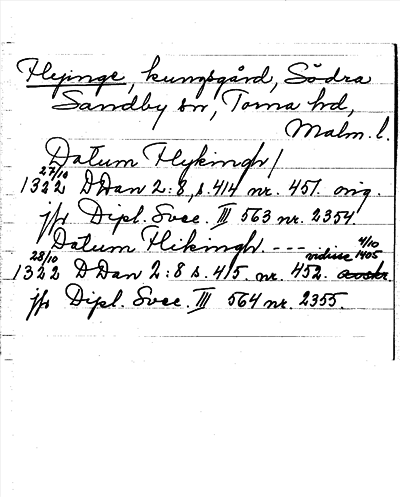 Flyinge, kungsgård, Södra
Sandby sn, Torna hd,
Malm. l.
Datum Flykingh /
27/10
1322 DDan 2:8, s. 414 nr. 451. orig.
jfr Dipl. Svec. III 563 nr. 2354.
Datum Flikingh. ---
28/10 vidisse 4/10 1405
1322 DDan 2:8 s. 415 nr. 452. avskr.
jfr Dipl. Svec. III 564 nr. 2355.